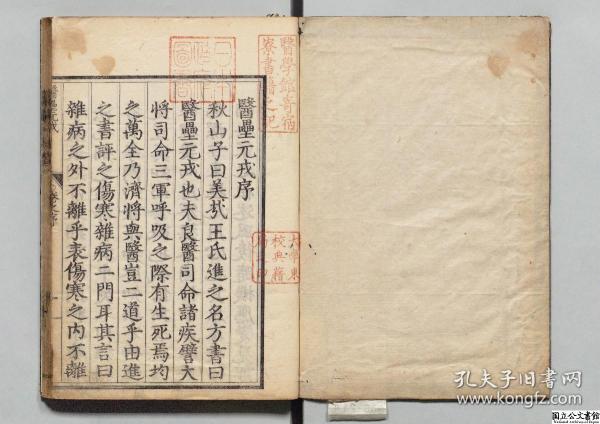 醫壘元戎序
秋山子曰美哉王氏進之名方書曰
醫壘元戎也夫良醫司命諸疾譬大
將司命三軍呼吸之際有生死焉均
之萬全乃濟將與醫豈二道乎由進
之書評之傷寒雜病二門耳其言曰
雜病之外不離乎表傷寒之內不離
醫學館寄宿
寮書籍之記
大學東
校典籍
局之印
孔夫子旧书网
www.kongfz.com
国立公文書館
National Archives of Japan